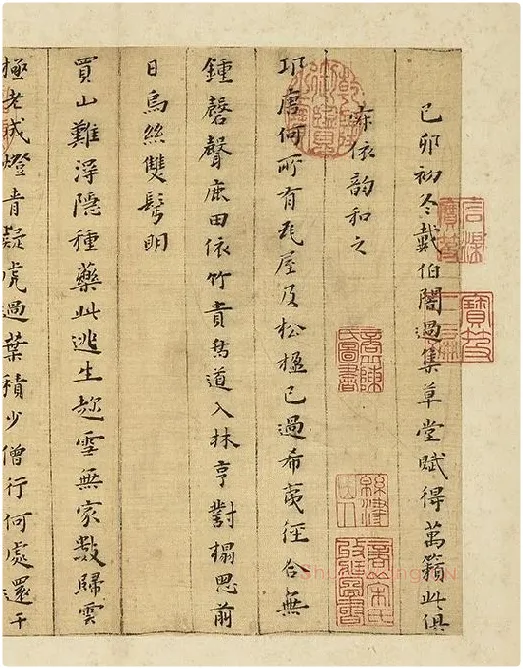 己卯初冬戴伯闇過集草堂賦得萬籟此俱
寂依韵和之
何所有瓦屋及松楹已過希夷徑合無
鍾磬聲鹿田依竹貴鳥道入林亨對榻思前
日烏絲雙髩明
買山難淂隱種藥此逃生趂雪無家數歸雲
極老成燈青疑虎過葉積少僧行何處還千
石渠寶笈
緜津山人